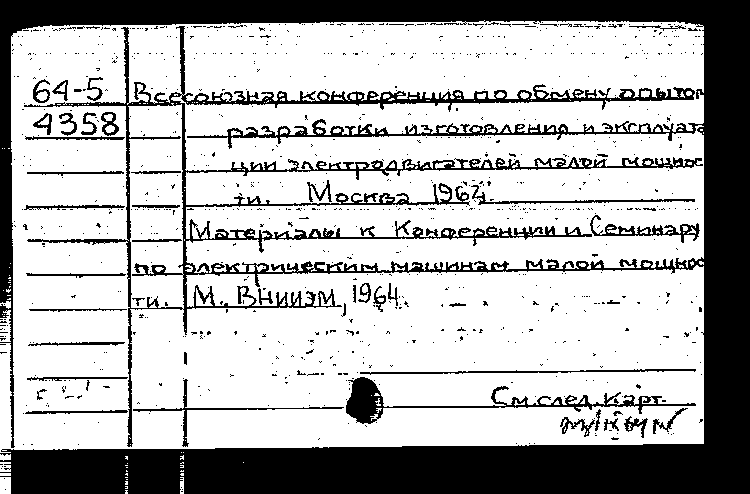 64-5 Всесоюзная конференция по обмену опытом
4358 разработки изготовления и эксплуата
ции электродвигателей малой мощнос
ти. Москва 1964.
Материалы к Конференции и Семинару
по электрическим машинам малой мощнос
ти. М., ВНИИЭМ, 1964.
См. след. карт.